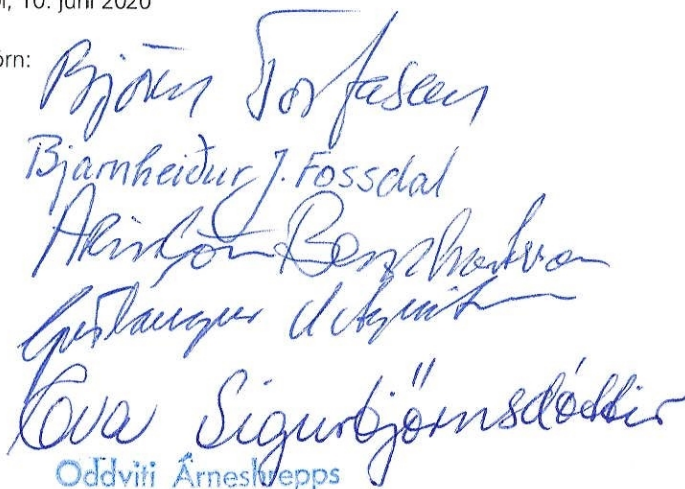 10. júní 2020
örn:
Björn Torfason
Bjarnheiður J. Fossdal
Arinbjörn Bernharðsson
Guðlaugur
Eva Sigurbjörnsdóttir
Oddviti Árneshrepps